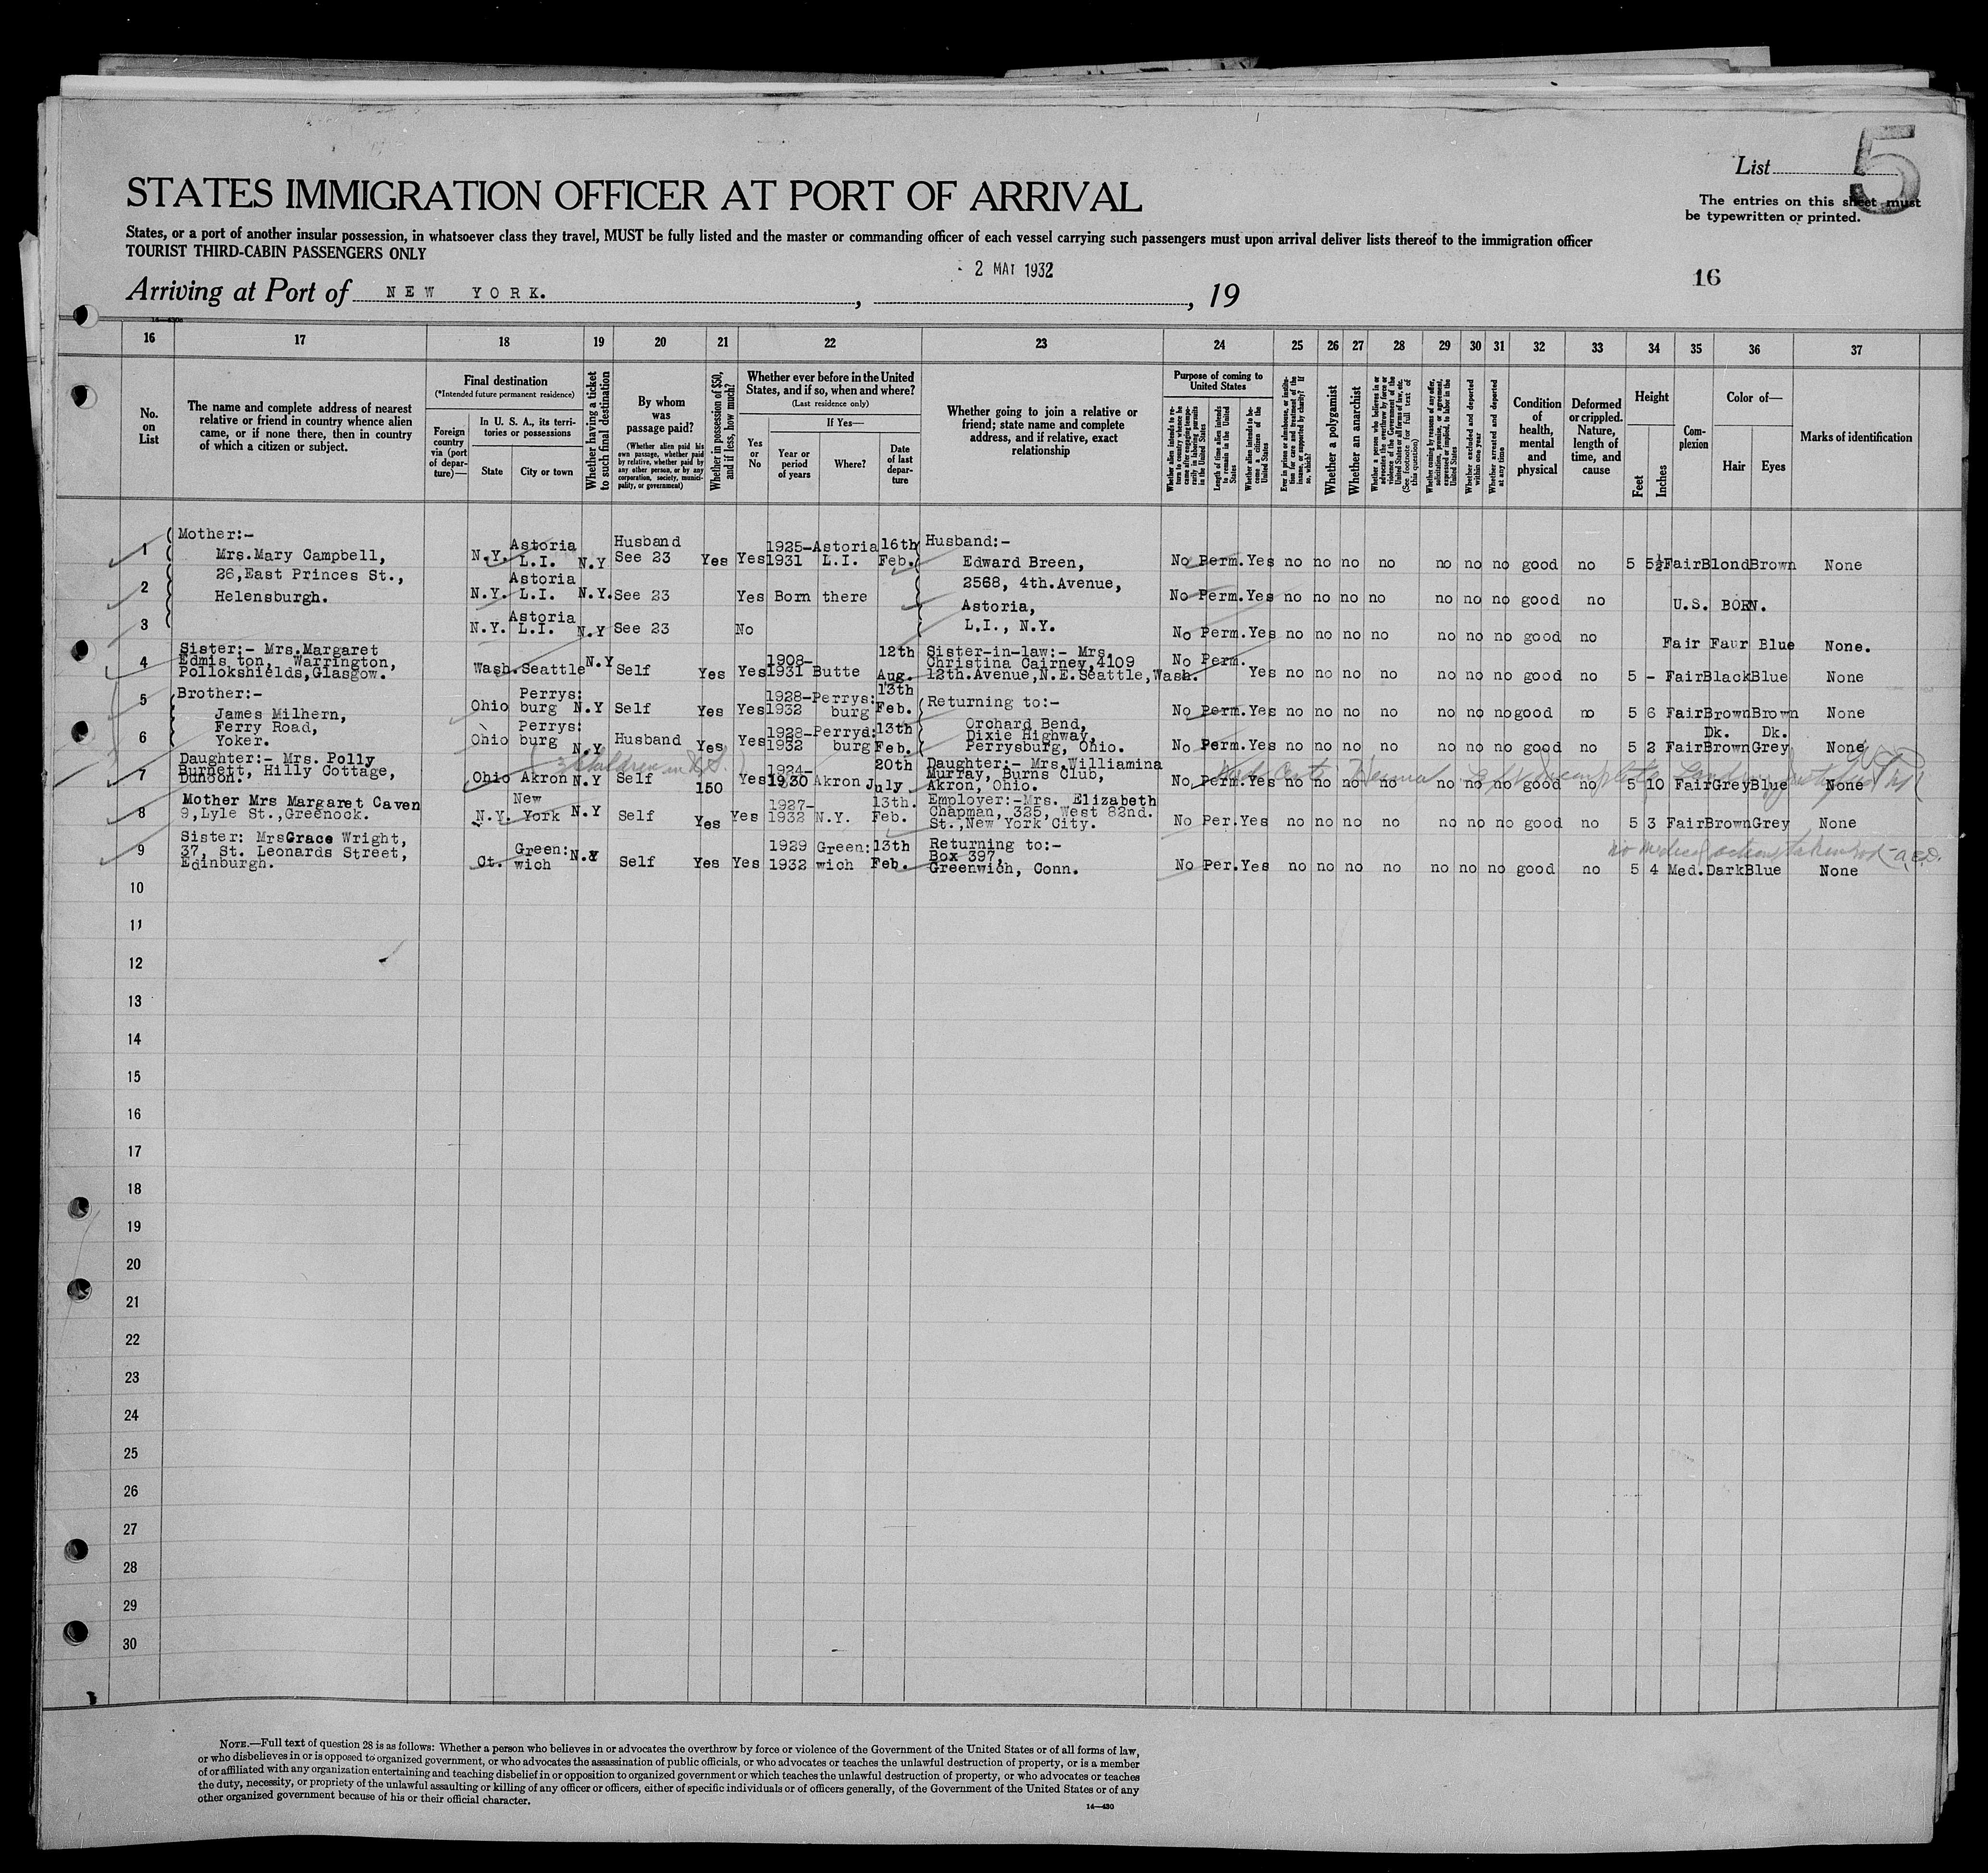 List
5
The entries on this sheet must
be typewritten or printed.
STATES IMMIGRATION OFFICER AT PORT OF ARRIVAL
States, or a port of another insular possession, in whatsoever class they travel, MUST be fully listed and the master or commanding officer of each vessel carrying such passengers must upon arrival deliver lists thereof to the immigration officer
TOURIST THIRD-CABIN PASSENGERS ONLY
2 MAI 1932
16
Arriving at Port of NEW YORK. , , 19
16 17 18 19 20 21 22 23 24 25 26 27 28 29 30 31 32 33 34 35 36 37
No. on List
The name and complete address of nearest relative or friend in country whence alien came, or if none there, then in country of which a citizen or subject.
Final destination
(*Intended future permanent residence)
Foreign country via (port of departure)—
In U. S. A., its territories or possessions
State
City or town
Whether having a ticket to such final destination
By whom was passage paid?
(Whether alien paid his own passage, whether paid by relative, whether paid by any other person, or by any corporation, society, municipality, or government)
Whether in possession of $50, and if less, how much?
Whether ever before in the United States, and if so, when and where?
(Last residence only)
Yes or No
If Yes—
Year or period of years
Where?
Date of last departure
Whether going to join a relative or friend; state name and complete address, and if relative, exact relationship
Purpose of coming to United States
Whether alien intends to return to country whence he came after engaging temporarily in laboring pursuits in the United States
Length of time alien intends to remain in the United States
Whether alien intends to become a citizen of the United States
Ever in prison or almshouse, or institution for care and treatment of the insane, or supported by charity? If so, which?
Whether a polygamist
Whether an anarchist
Whether a person who believes in or advocates the overthrow by force or violence of the Government of the United States or all forms of law, etc. (See footnote for full text of this question)
Whether coming by reason of any offer, solicitation, promise, or agreement, expressed or implied, to labor in the United States
Whether excluded and deported within one year
Whether arrested and deported at any time
Condition of health, mental and physical
Deformed or crippled. Nature, length of time, and cause
Height
Feet
Inches
Complexion
Color of—
Hair
Eyes
Marks of identification
1 Mother:- Mrs.Mary Campbell, N.Y. Astoria L.I. N.Y Husband See 23 Yes Yes 1925-1931 Astoria L.I. 16th Feb. Husband:- Edward Breen, No Perm. Yes no no no no no no no good no 5 5½ Fair Blond Brown None
2 26,East Princes St., Helensburgh. N.Y. Astoria L.I. N.Y. See 23 Yes Born there 2568, 4th.Avenue, Astoria, No Perm. Yes no no no no no no no good no U.S. BORN.
3 N.Y. Astoria L.I. N.Y See 23 No L.I., N.Y. No Perm. Yes no no no no no no no good no Fair Fair Blue None.
4 Sister:- Mrs.Margaret Edmis ton, Warrington, Pollokshields,Glasgow. Wash. Seattle N.Y Self Yes Yes 1908-1931 Butte 12th Aug. Sister-in-law:- Mrs. Christina Cairney,4109 12th.Avenue,N.E.Seattle,Wash. No Perm. Yes no no no no no no no good no 5 - Fair Black Blue None
5 Brother:- James Milhern, Ohio Perrys:burg N.Y Self Yes Yes 1928-1932 Perrys:burg 13th Feb. Returning to:- No Perm. Yes no no no no no no no good no 5 6 Fair Brown Brown None
6 Ferry Road, Yoker. Ohio Perrys:burg N.Y Husband Yes Yes 1928-1932 Perrys:burg 13th Feb. Orchard Bend, Dixie Highway, Perrysburg, Ohio. No Perm. Yes no no no no no no no good no 5 2 Fair Dk. Brown Dk. Grey None
3 children in U.S.
7 Daughter:- Mrs. Polly Burnett, Hilly Cottage, Dunoon. Ohio Akron N.Y Self 150 Yes 1924-1930 Akron 20th July Daughter:- Mrs.Williamina Murray, Burns Club, Akron, Ohio. No Perm. Yes no no no no no no no good no 5 10 Fair Grey Blue None
8 Mother Mrs Margaret Caven 9,Lyle St.,Greenock. N.Y. New York N.Y Self Yes Yes 1927-1932 N.Y. 13th. Feb. Employer:-Mrs. Elizabeth Chapman, 325, West 82nd. St.,New York City. No Per. Yes no no no no no no no good no 5 3 Fair Brown Grey None
no medical action taken
9 Sister: Mrs Grace Wright, 37, St. Leonards Street, Edinburgh. Ct. Green:wich N.Y Self Yes Yes 1929 1932 Green:wich 13th Feb. Returning to:- Box 397, Greenwich, Conn. No Per. Yes no no no no no no no good no 5 4 Med. Dark Blue None
10
11
12
13
14
15
16
17
18
19
20
21
22
23
24
25
26
27
28
29
30
NOTE.—Full text of question 28 is as follows: Whether a person who believes in or advocates the overthrow by force or violence of the Government of the United States or of all forms of law,
or who disbelieves in or is opposed to organized government, or who advocates the assassination of public officials, or who advocates or teaches the unlawful destruction of property, or is a member
of or affiliated with any organization entertaining and teaching disbelief in or opposition to organized government or which teaches the unlawful destruction of property, or who advocates or teaches
the duty, necessity, or propriety of the unlawful assaulting or killing of any officer or officers, either of specific individuals or of officers generally, of the Government of the United States or of any
other organized government because of his or their official character.
14—430